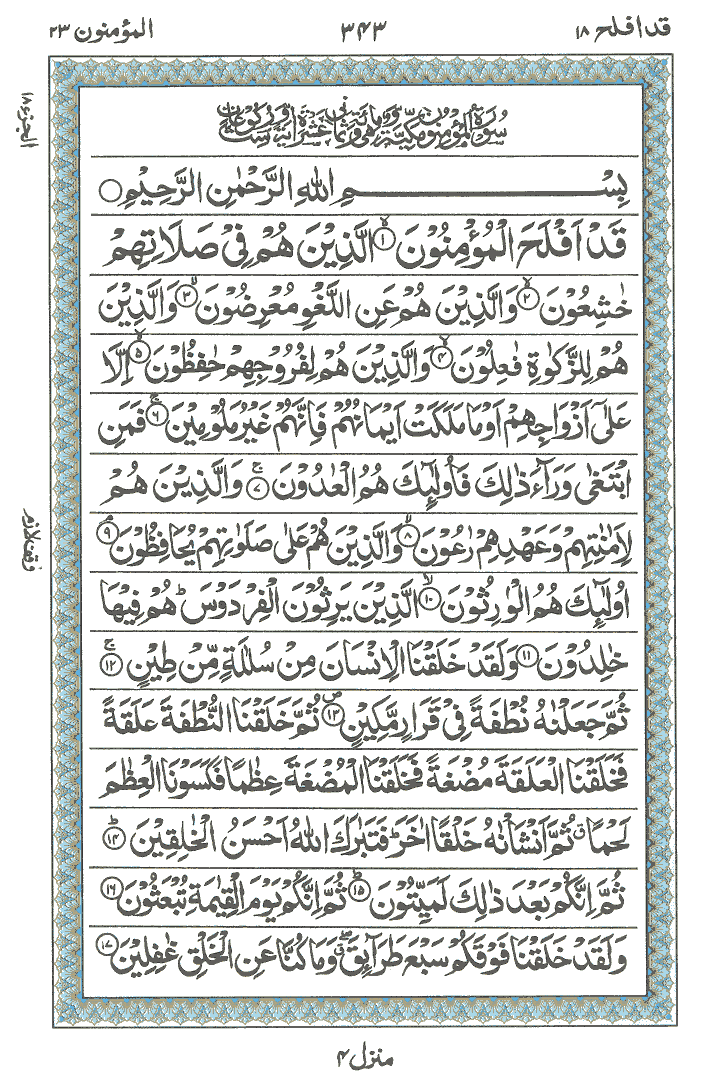 قد افلح ۱۸
۳۴۳
المؤمنون ۲۳
الجزء ۱۸
بِسْمِ اللهِ الرَّحْمٰنِ الرَّحِيْمِ
قَدْ اَفْلَحَ الْمُؤْمِنُوْنَ ۙ﴿۱﴾ الَّذِيْنَ هُمْ فِيْ صَلَاتِهِمْ
خٰشِعُوْنَ ۙ﴿۲﴾ وَالَّذِيْنَ هُمْ عَنِ اللَّغْوِ مُعْرِضُوْنَ ۙ﴿۳﴾ وَالَّذِيْنَ
هُمْ لِلزَّكٰوةِ فٰعِلُوْنَ ۙ﴿۴﴾ وَالَّذِيْنَ هُمْ لِفُرُوْجِهِمْ حٰفِظُوْنَ ۙ﴿۵﴾ اِلَّا
عَلٰٓى اَزْوَاجِهِمْ اَوْ مَا مَلَكَتْ اَيْمَانُهُمْ فَاِنَّهُمْ غَيْرُ مَلُوْمِيْنَ ۚ﴿۶﴾ فَمَنِ
ابْتَغٰى وَرَآءَ ذٰلِكَ فَاُولٰٓئِكَ هُمُ الْعٰدُوْنَ ۚ﴿۷﴾ وَالَّذِيْنَ هُمْ
لِاَمٰنٰتِهِمْ وَعَهْدِهِمْ رٰعُوْنَ ۙ﴿۸﴾ وَالَّذِيْنَ هُمْ عَلٰى صَلَوٰتِهِمْ يُحَافِظُوْنَ ۘ﴿۹﴾
وقف لازم
اُولٰٓئِكَ هُمُ الْوٰرِثُوْنَ ۙ﴿۱۰﴾ الَّذِيْنَ يَرِثُوْنَ الْفِرْدَوْسَ ؕ هُمْ فِيْهَا
خٰلِدُوْنَ ﴿۱۱﴾ وَلَقَدْ خَلَقْنَا الْاِنْسَانَ مِنْ سُلٰلَةٍ مِّنْ طِيْنٍ ۚ﴿۱۲﴾
ثُمَّ جَعَلْنٰهُ نُطْفَةً فِيْ قَرَارٍ مَّكِيْنٍ ۪﴿۱۳﴾ ثُمَّ خَلَقْنَا النُّطْفَةَ عَلَقَةً
فَخَلَقْنَا الْعَلَقَةَ مُضْغَةً فَخَلَقْنَا الْمُضْغَةَ عِظٰمًا فَكَسَوْنَا الْعِظٰمَ
لَحْمًا ۗ ثُمَّ اَنْشَاْنٰهُ خَلْقًا اٰخَرَ ؕ فَتَبٰرَكَ اللهُ اَحْسَنُ الْخٰلِقِيْنَ ؕ﴿۱۴﴾
ثُمَّ اِنَّكُمْ بَعْدَ ذٰلِكَ لَمَيِّتُوْنَ ؕ﴿۱۵﴾ ثُمَّ اِنَّكُمْ يَوْمَ الْقِيٰمَةِ تُبْعَثُوْنَ ﴿۱۶﴾
وَلَقَدْ خَلَقْنَا فَوْقَكُمْ سَبْعَ طَرَآئِقَ ۖۗ وَمَا كُنَّا عَنِ الْخَلْقِ غٰفِلِيْنَ ﴿۱۷﴾
منزل ۴